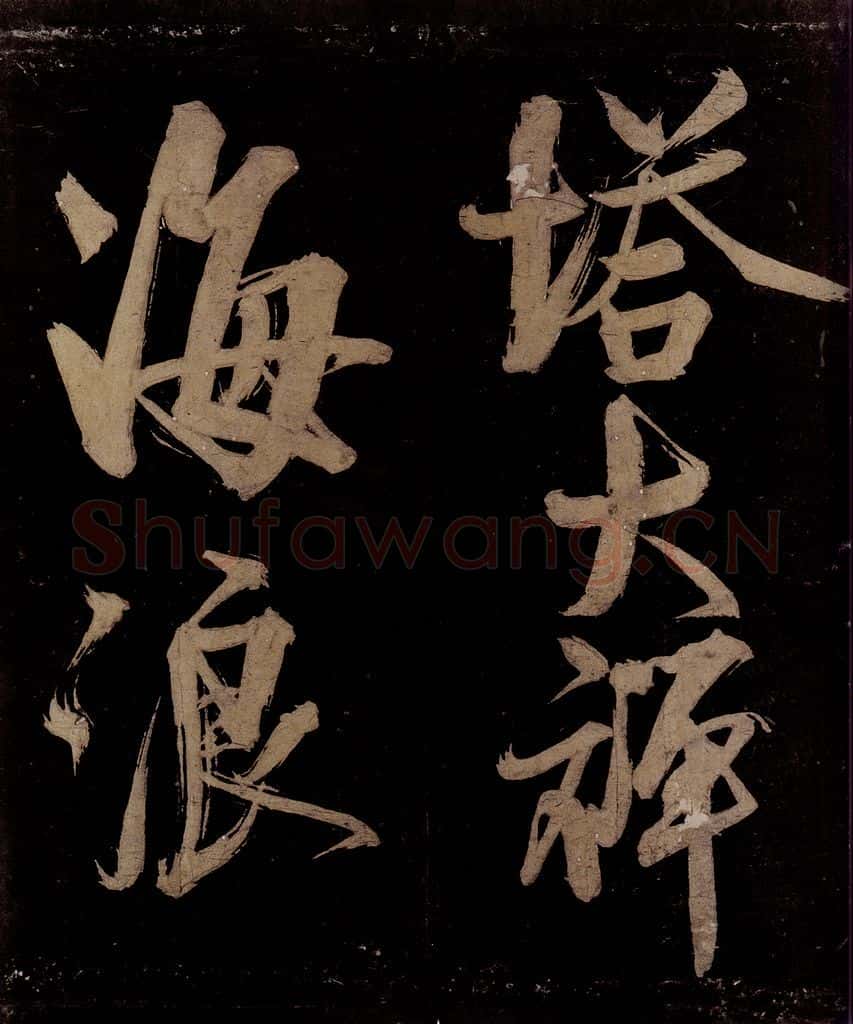 塔大禅
海浪
Shufawang.CN